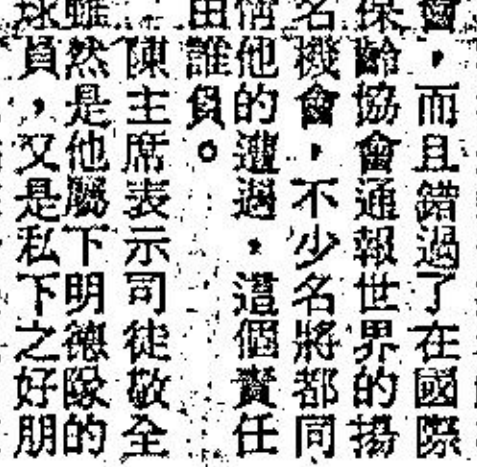 會，而且錯過了在國際
保齡協會通報世界的揚
名機會，不少名將都同
情他的遭遇，這個責任
由誰負。
陳主席表示司徒敬全
雖然是他屬下明德隊的
球員，又是私下之好朋